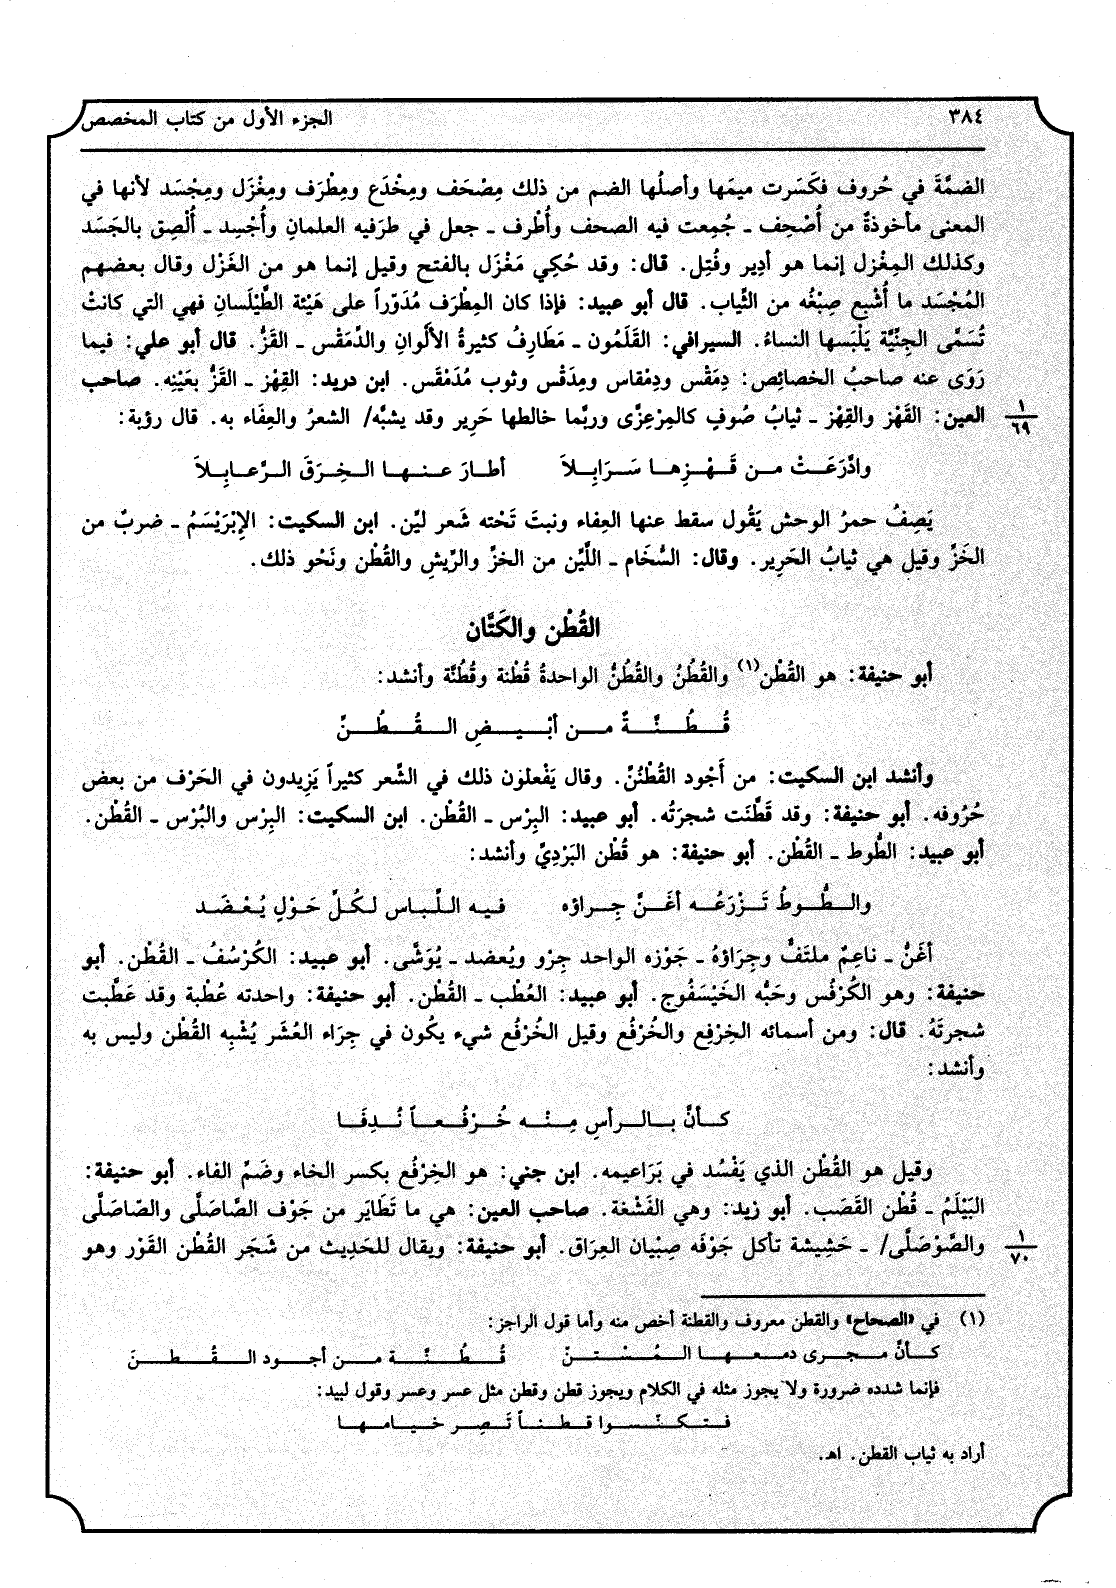 ٣٨٤ الجزء الأول من كتاب المخصص
الضمَّةَ في حُروف فكَسَرت ميمَها وأصلُها الضم من ذلك مِصْحَف ومِخْدَع ومِطْرَف ومِغْزَل ومِجْسَد لأنها في
المعنى مأخوذةٌ من أُصْحِف ـ جُمِعت فيه الصحف وأُطْرِف ـ جعل في طرَفيه العلمانِ وأُجْسِد ـ أُلْصِق بالجَسَد
وكذلك المِغْزل إنما هو أدِير وفُتِل. قال: وقد حُكِي مَغْزَل بالفتح وقيل إنما هو من الغَزْل وقال بعضهم
المُجْسَد ما أُشْبِع صِبْغُه من الثِّياب. قال أبو عبيد: فإذا كان المِطْرَف مُدَوَّراً على هَيْئة الطَّيْلَسان فهي التي كانتْ
تُسَمَّى الجِنِّيَّة يَلْبَسها النساءُ. السيرافي: القَلَمُون ـ مَطَارِفُ كثيرةُ الألْوانِ والدِّمَقْس ـ القَزُّ. قال أبو علي: فيما
رَوَى عنه صاحبُ الخصائص: دِمَقْس ودِمْقاس ومِدَقْس وثوب مُدَمْقَس. ابن دريد: القِهْز ـ القَزُّ بعَيْنِه. صاحب
العين: القَهْز والقِهْز ـ ثيابُ صُوفٍ كالمِرْعِزَّى وربَّما خالطها حَرِير وقد يشبَّه/ الشعرُ والعِفَاء به. قال رؤبة:
١
٦٩
وادَّرَعَتْ من قَهْزِها سَرَابِلاَ أطارَ عنها الخِرَقَ الرَّعابِلاَ
يَصِفُ حمرُ الوحش يَقُول سقط عنها العِفاء ونبتَ تَحْته شَعر ليِّن. ابن السكيت: الإبْرَيْسَمُ ـ ضربٌ من
الخَزِّ وقيل هي ثيابُ الحَرِير. وقال: السُّخَام ـ اللَّيِّن من الخزِّ والرِّيشِ والقُطْن ونَحْو ذلك.
القُطْن والكَتَّان
أبو حنيفة: هو القُطْن(١) والقُطُنُ والقُطُنُّ الواحدةُ قُطْنة وقُطُنَّة وأنشد:
قُطُنَّةٌ من أبْيضِ القُطُنِّ
وأنشد ابن السكيت: من أَجْود القُطْنُنِّ. وقال يَفْعلون ذلك في الشِّعر كثيراً يَزِيدون في الحَرْف من بعض
حُرُوفه. أبو حنيفة: وقد قَطَّنَت شجرَتُه. أبو عبيد: البِرْس ـ القُطْن. ابن السكيت: البِرْس والبُرْس ـ القُطْن.
أبو عبيد: الطُّوط ـ القُطْن. أبو حنيفة: هو قُطْن البَرْدِيِّ وأنشد:
والطُّوطُ تَزْرَعُه أغَنَّ جِراؤه فيه اللِّباس لكُلِّ حَوْلٍ يُعْضَد
أغَنُّ ـ ناعِمٌ ملتَفٌّ وجِرَاؤهُ ـ جَوْزه الواحد جِرْو ويُعضد ـ يُوَشَّى. أبو عبيد: الكُرْسُفُ ـ القُطْن. أبو
حنيفة: وهو الكُرْفُس وحَبُّه الخَيْسَفُوج. أبو عبيد: العُطْب ـ القُطْن. أبو حنيفة: واحدته عُطْبة وقد عَطَّبت
شجرتَهُ. قال: ومن أسمائه الخِرْفِع والخُرْفُع وقيل الخُرْفُع شيء يكُون في جِرَاء العُشَر يُشْبِه القُطْن وليس به
وأنشد:
كأنَّ بالرأسِ مِنْه خُرْفُعاً نُدِفَا
وقيل هو القُطْن الذي يَفْسُد في بَرَاعيمه. ابن جني: هو الخِرْفُع بكسر الخاء وضَمّ الفاء. أبو حنيفة:
البَيْلَمُ ـ قُطْن القَصَب. أبو زيد: وهي الفَشْغة. صاحب العين: هي ما تَطَايَر من جَوْف الصَّاصَلَّى والصَّاصَلَّى
والصَّوْصَلَّى/ ـ حَشِيشة تأكل جَوْفَه صِبْيان العِرَاق. أبو حنيفة: ويقال للحَدِيث من شَجَر القُطْن القَوْر وهو
١
٧٠
(١) في «الصحاح» والقطن معروف والقطنة أخص منه وأما قول الراجز:
كأنَّ مجرى دمعها المُسْتنّ قُطُنَّة من أجود القُطنّ
فإنما شدده ضرورة ولا يجوز مثله في الكلام ويجوز قطن وقطن مثل عسر وعسر وقول لبيد:
فتكنّسوا قطناً تَصِر خيامها
أراد به ثياب القطن. اهـ.